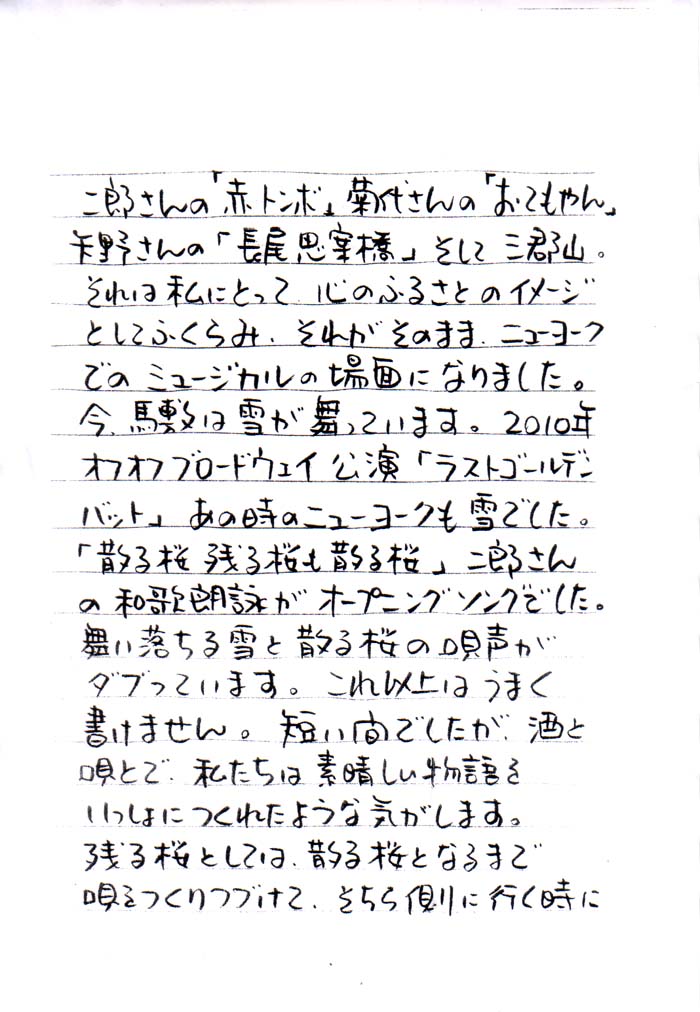 二郎さんの「赤トンボ」菊代さんの「おてもやん」
矢野さんの「長尾思案橋」そして三郡山。
それは私にとって、心のふるさとのイメージ
としてふくらみ、それがそのまま、ニューヨーク
でのミュージカルの場面になりました。
今、馬敷は雪が舞っています。2010年
オフオフブロードウェイ公演「ラストゴールデン
バット」あの時のニューヨークも雪でした。
「散る桜 残る桜も散る桜」二郎さん
の和歌朗詠がオープニングソングでした。
舞い落ちる雪と散る桜の唄声が
ダブっています。これ以上はうまく
書けません。短い間でしたが、酒と
唄とで、私たちは素晴しい物語を
いっしょにつくれたような気がします。
残る桜としては、散る桜となるまで
唄をつくりつづけて、そちら側に行く時に